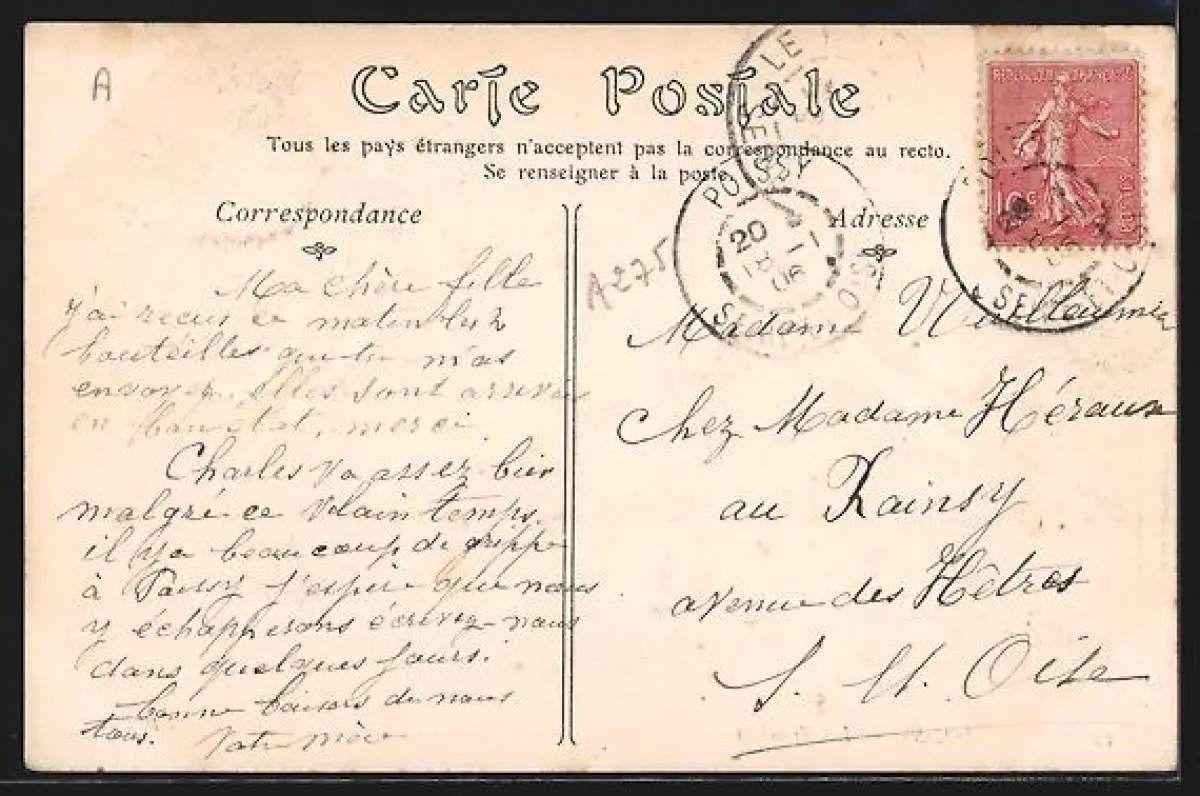 A
Carte Postale
Tous les pays étrangers n'acceptent pas la correspondance au recto.
Se renseigner à la poste.
Correspondance
Ma chère fille
j'ai recus ce matin les 2
bouteilles que tu m'as
envoyer. elles sont arrivés
en bon état, merci
Charles va assez bien
malgré ce vilain temps.
il y a beaucoup de grippe
à Poissy j'espère que nous
y échapperons écrivez-nous
dans quelques jours.
bonne baisers de nous
tous. Votre mère
A275
Adresse
Madame Vuilleumier
chez Madame Héraux
au Rainsy
avenue des Hêtres
S. et Oise
POISSY
20
1
06
SEINE ET OISE
REPUBLIQUE FRANCAISE
10c
POSTES
20
SEINE ET O
LE